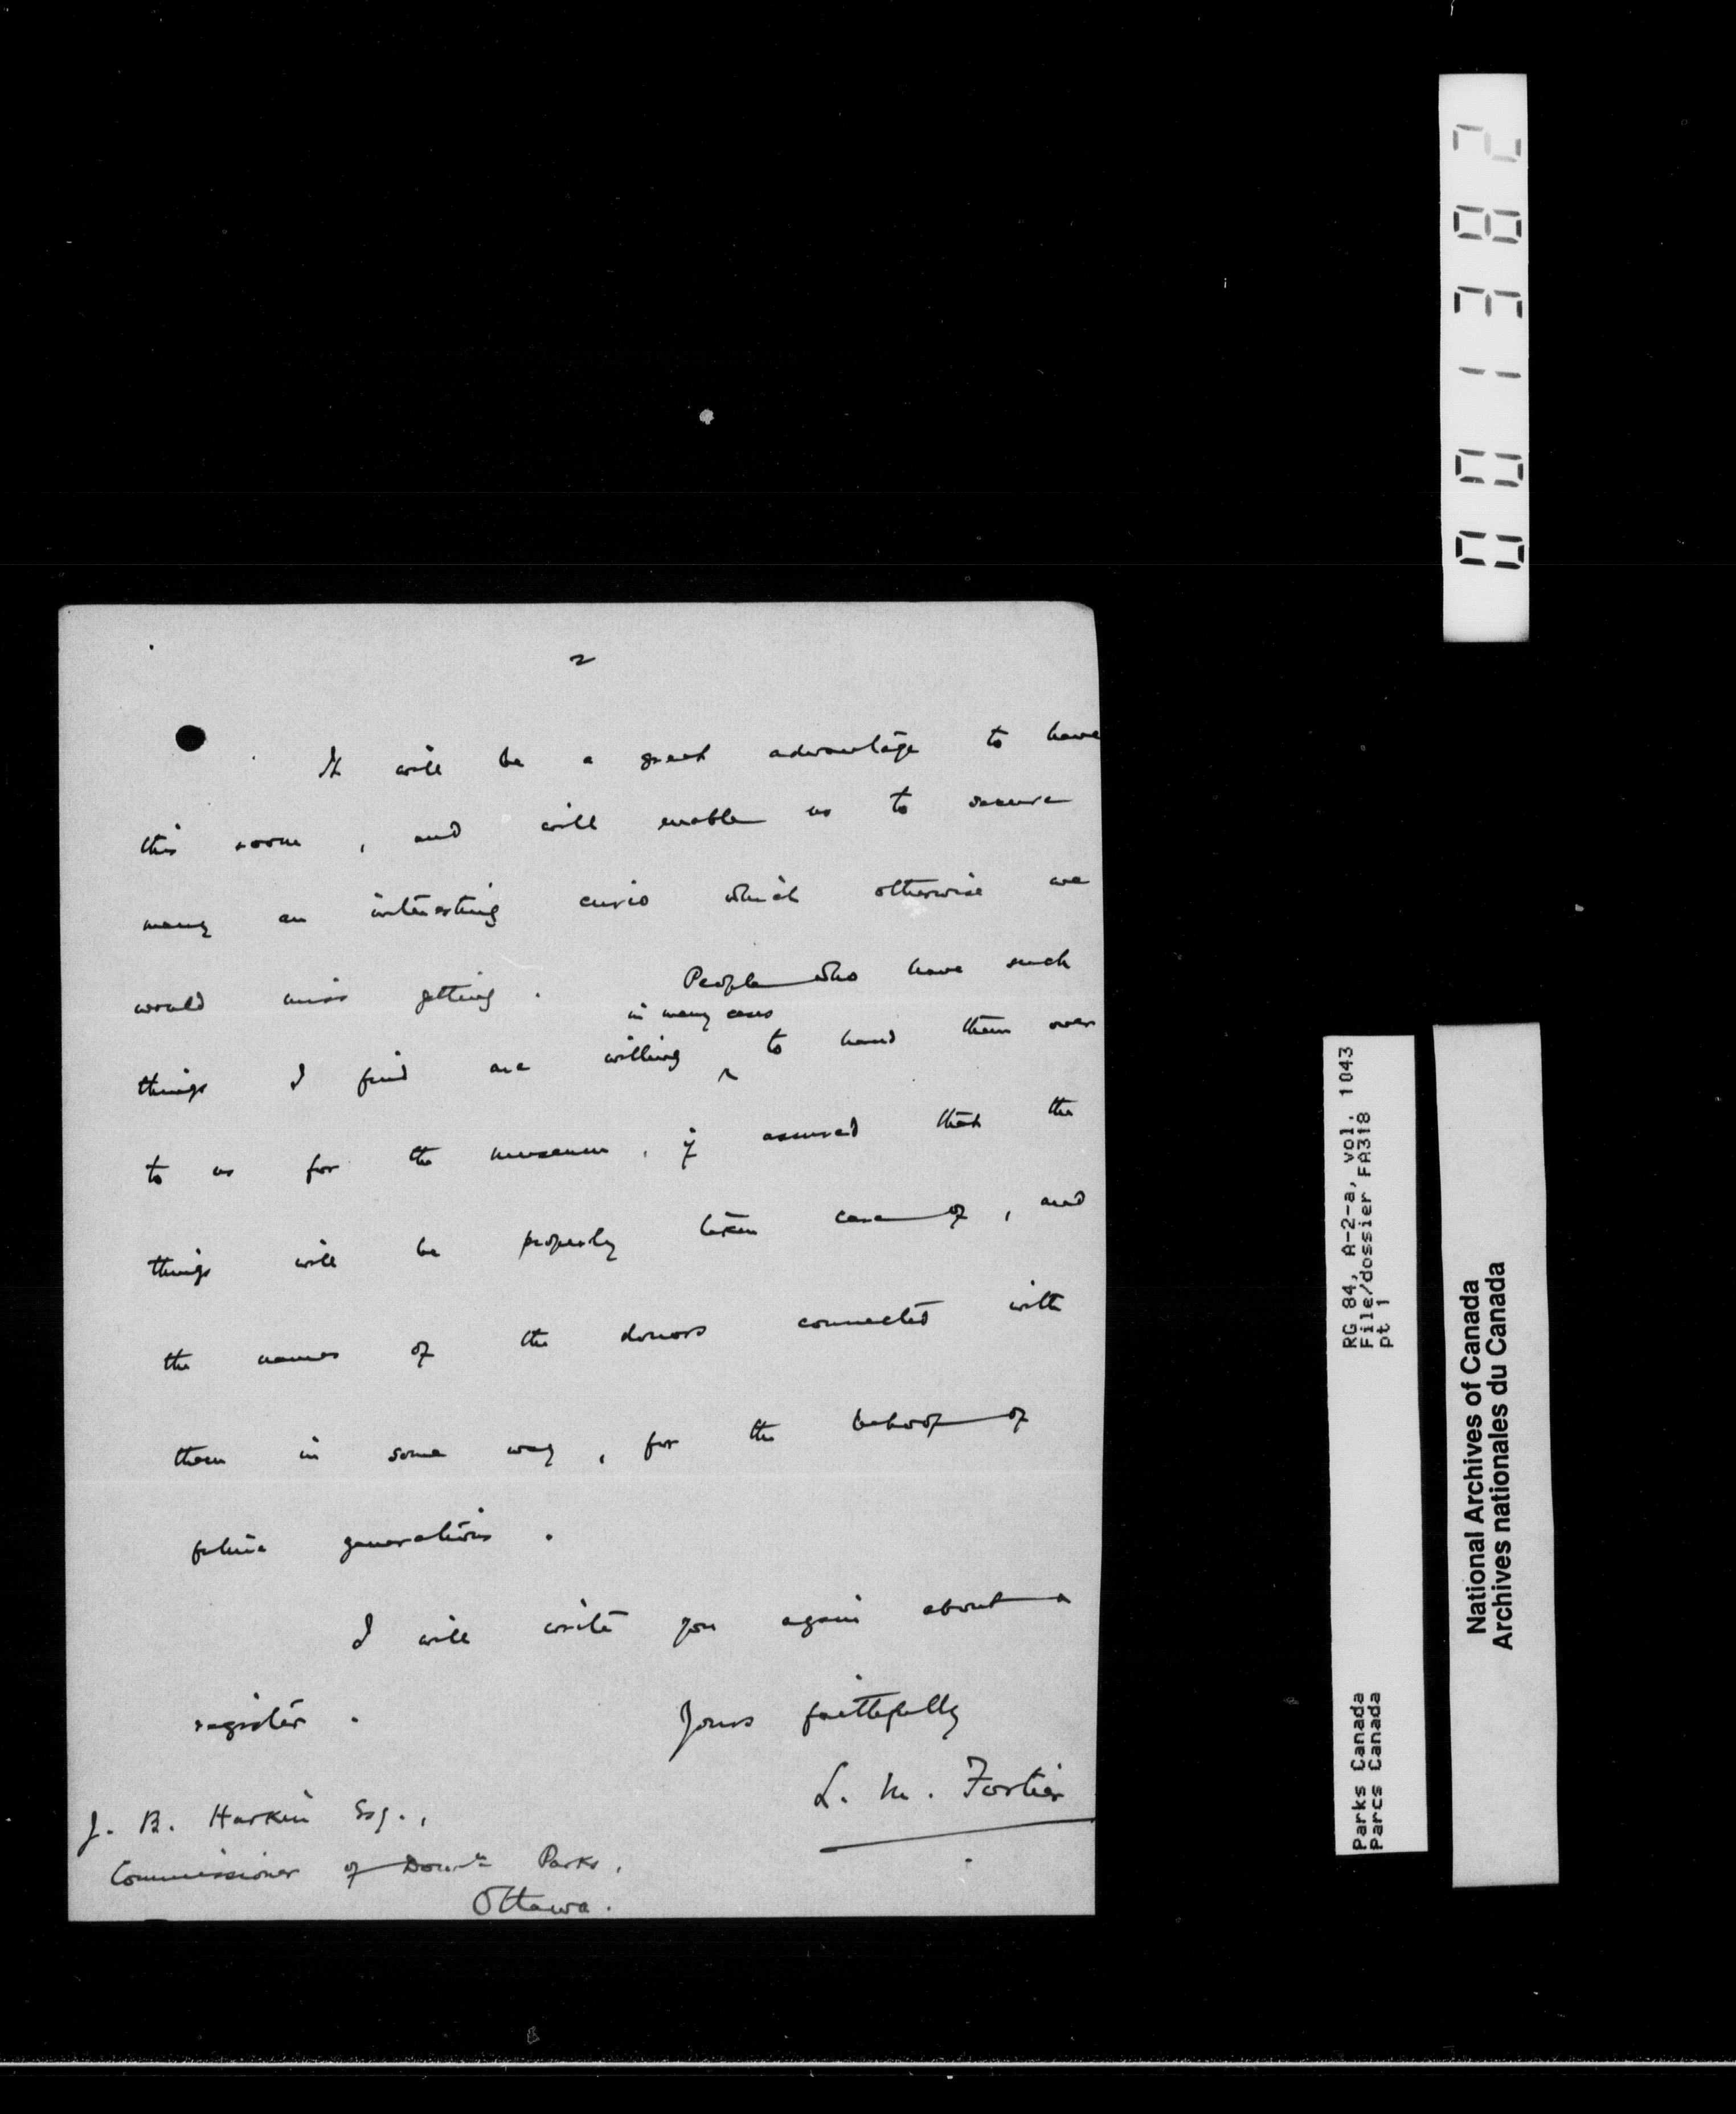 2
It will be a great advantage to have
this room, and will enable us to secure
many an interesting curio which otherwise we
would miss getting. People who have such
in many cases
things I find are willing ^ to hand them over
to us for the museum, if assured that the
things will be properly taken care of, and
the names of the donors connected with
them in some way, for the behoof of
future generations.
I will write you again about a
register. Yours faithfully
L. M. Fortier
J. B. Harkin Esq.,
Commissioner of Domn Parks,
Ottawa.
001382
RG 84, A-2-a, vol. 1043
File/dossier FA318
pt 1
Parks Canada
Parcs Canada
National Archives of Canada
Archives nationales du Canada